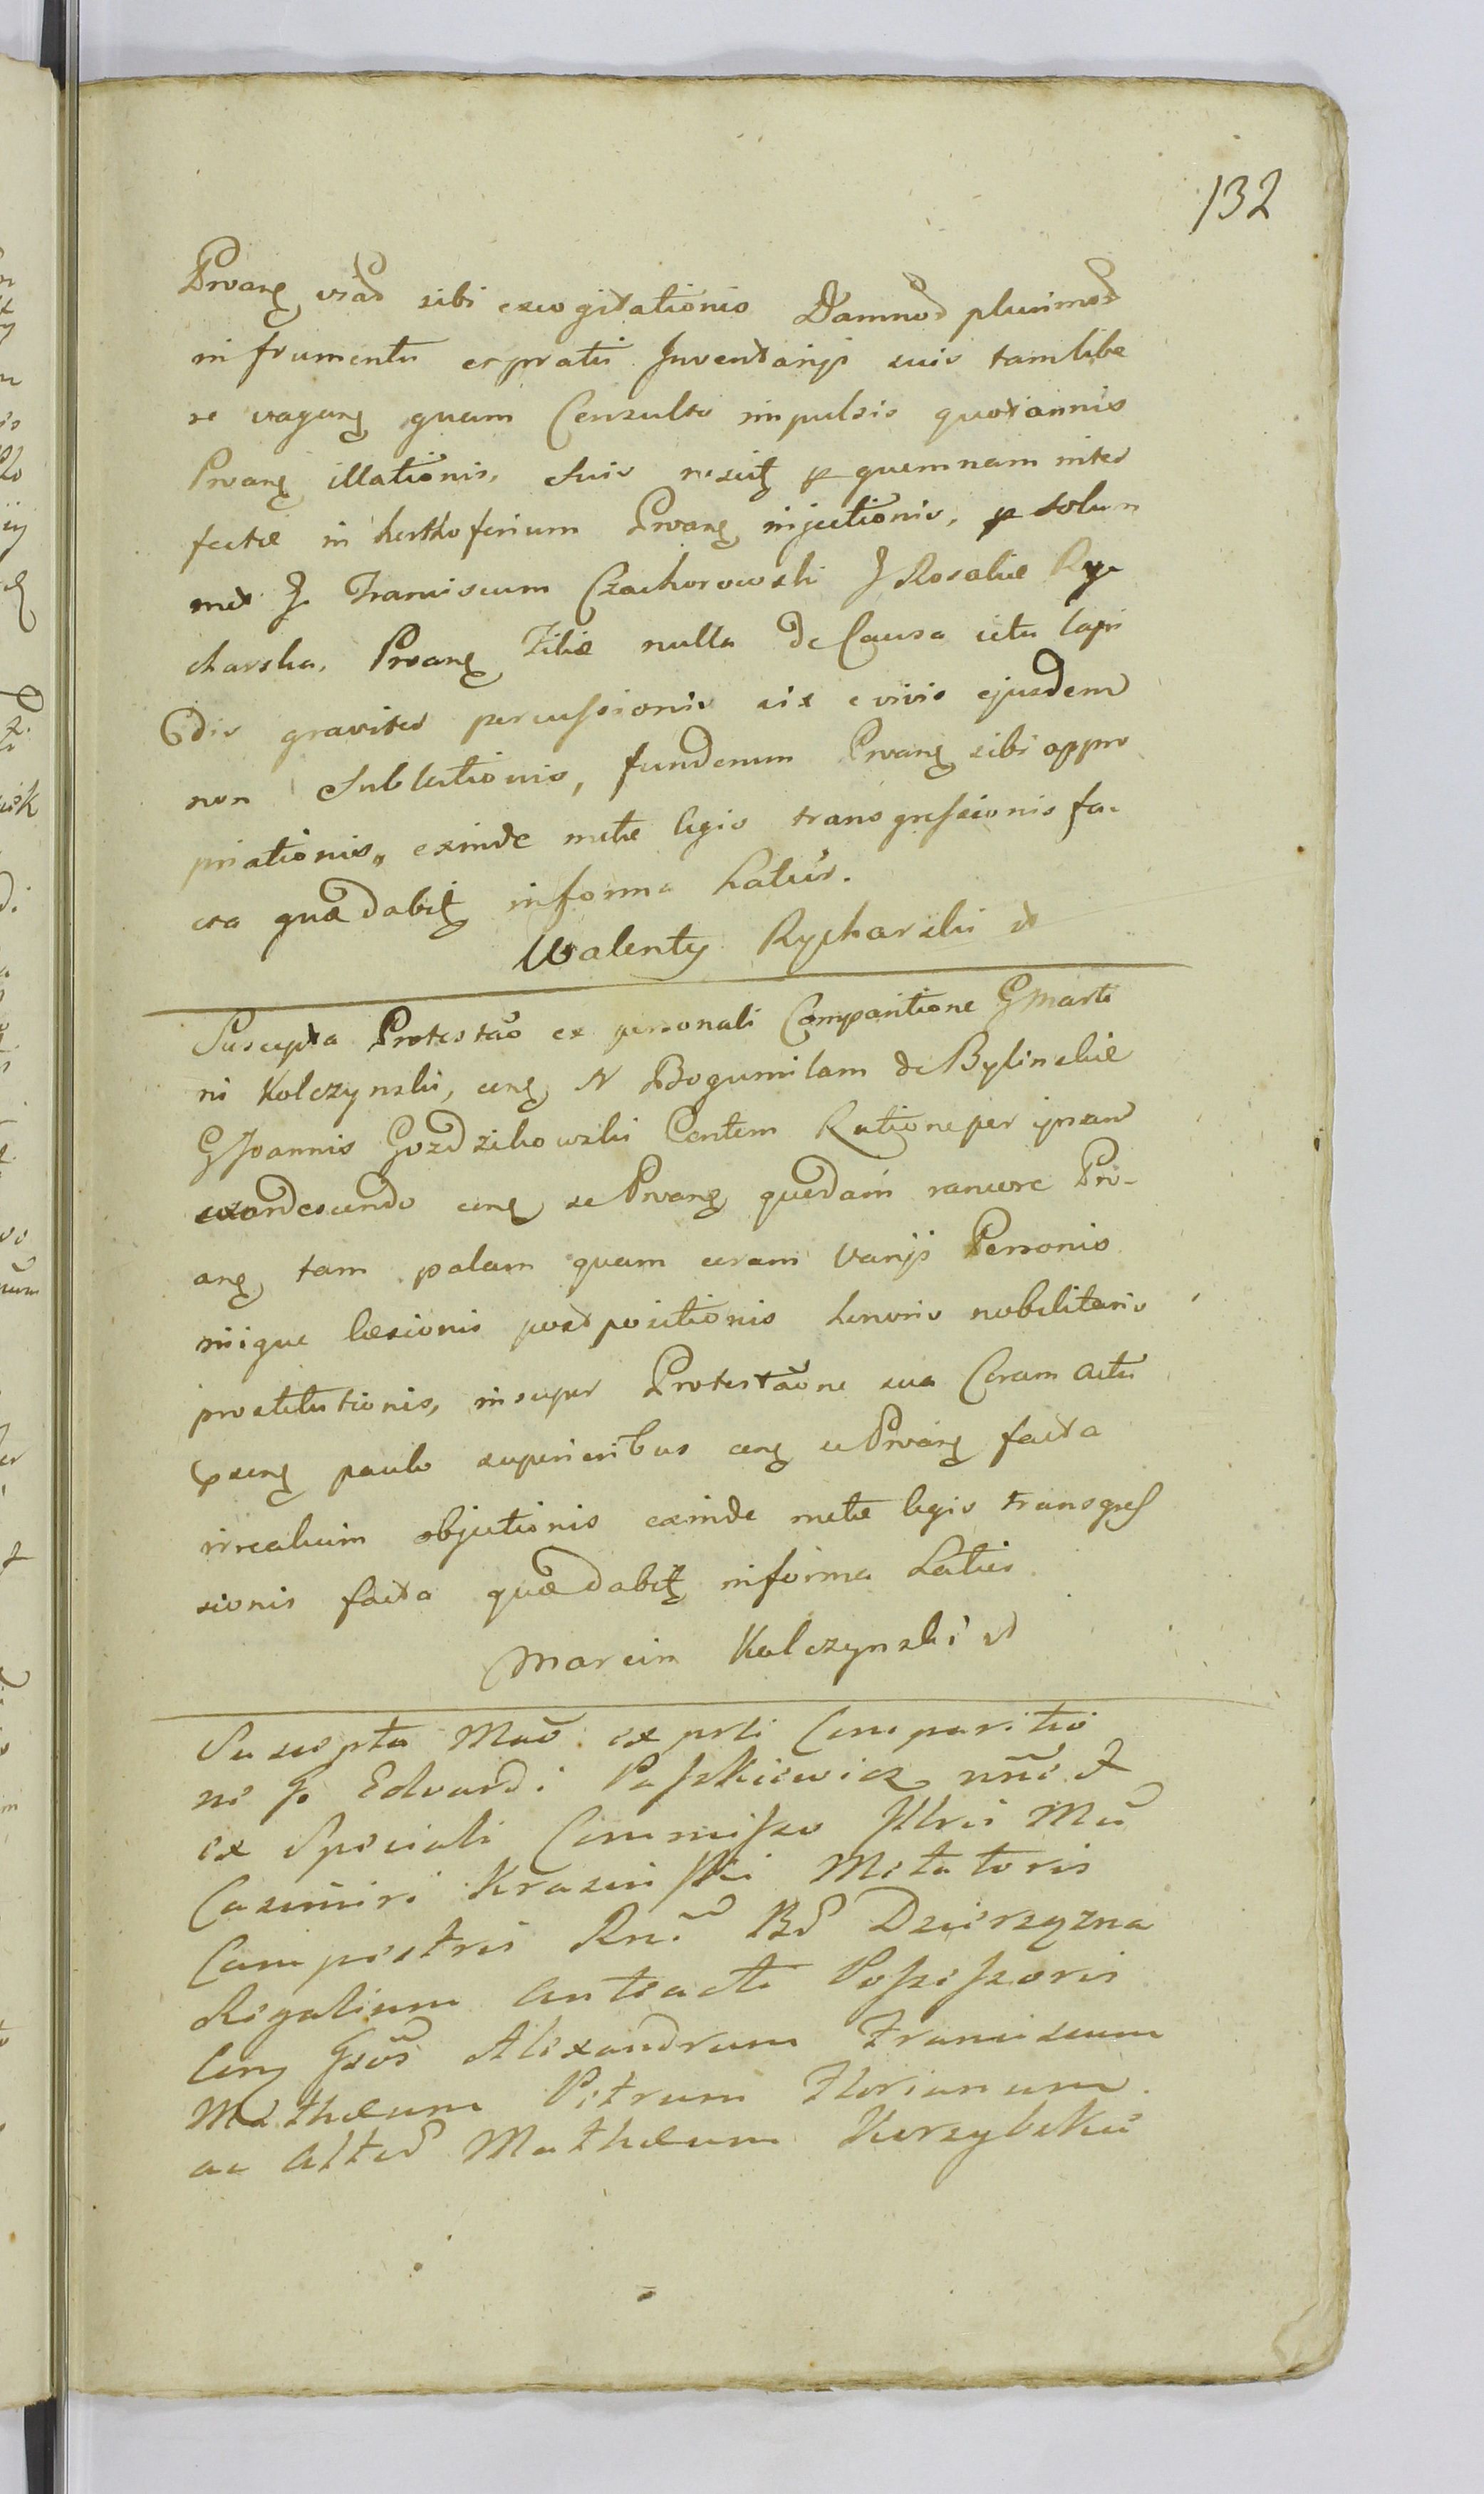 132
Prvang viad sibi excogitationis Damnod plurimod
in frumentu et pratii Inventarijs suis tam libe
re vagang quam Consulto impulsis quotannis
Prvang illationis, Suis nesciitz p quemnam inter
fectæ in hosthoferium Prvang injectionis, p solum
met G Franciscum Czachorowski G Rosaliæ Ry-
charska, Prvang Filiæ nulla de Causa ictu lapi
dis graviter percussionis vix e vivis ejusdem
non Sublationis, fundorum Prvang sibi appro
priationis, exinde metæ legis transgressionis fa-
cta quædabitz in forma Latiūs.
Walenty Rycharski
Suscepta Protestāo ex personali Comparitione G Marti
ni Kolczynski, cung N Bogumilam de Bylinskie
G Joannis Gozdzikowski Contem Ratione per ipsam
excandescendo cung se Prvang quædam rancore Prv-
ang tam palam quam coram Varijs Personis
niique læsionis postpositionis honoris nobilitaris
prostitutionis, insuper Protestāone sua Coram Actis
pseng paulo superioribus cung se Prvang facta
irrealium objectionis exinde metæ legis transgres
sionis facta quædabitz in forma Latius
Marcin Kolczynski
Suscepta Māo ex prli Comparitio
ne G Edvardi Paszkiewicz nñe et
ex Speciali Commisso Illris Mci
Casimiri Krasinski Metatoris
Campestris Rñi Bd Dzierzązna
Regalium Anteacti Possessoris
Cong Gsos Alexandrum Franciscum
Mathæum Petrum Florianum
ac Alted Mathæum Korzybski